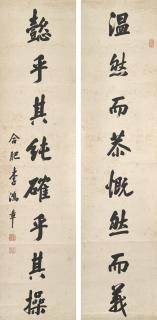 温然而恭慨然而義
懿乎其純確乎其操
合肥李鴻章